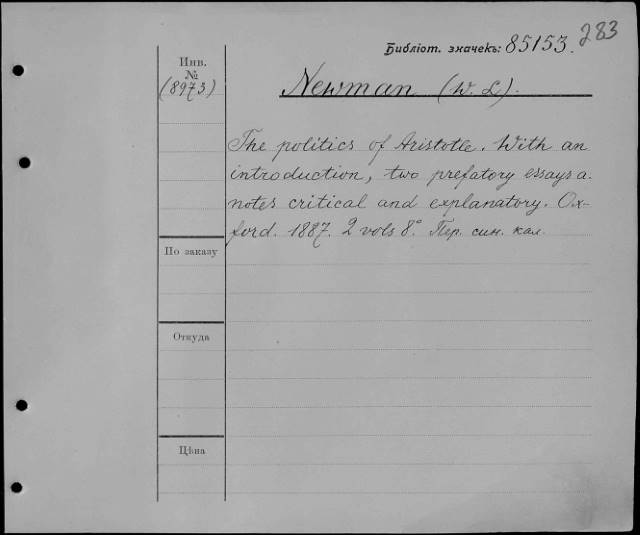 283
Библіот. значекъ: 85153.
Инв.
№
(8973)
Newman (W. L).
The politics of Aristotle. With an
introduction, two prefatory essays a.
notes critical and explanatory. Ox-
ford. 1887. 2 vols 8° Пер. син. кал.
По заказу
Откуда
Цѣна